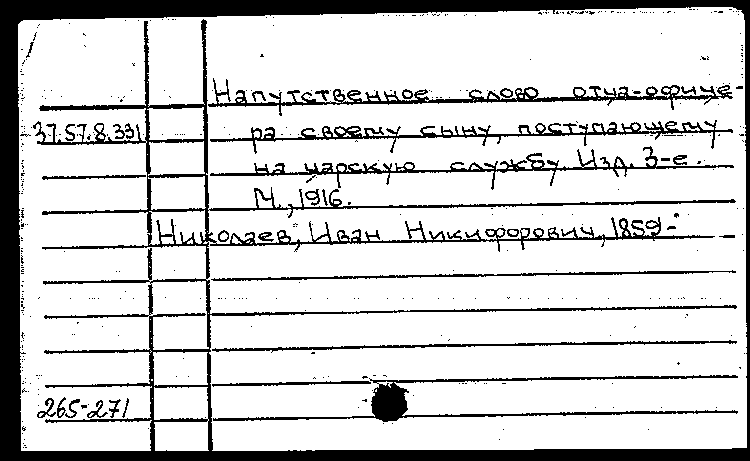 Напутственное слово отца-офице-
37.57.8.331 ра своему сыну, поступающему
на царскую службу. Изд. 3-е.
М., 1916.
Николаев, Иван Никифорович, 1859-
265-271